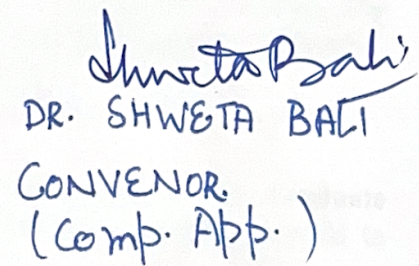 Shweta Bali
DR. SHWETA BALI
CONVENOR.
(Comp. App.)